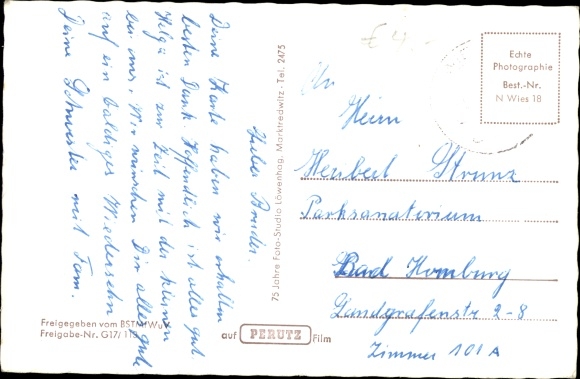 Lieber Bruder.
Deine Karte haben wir erhalten
besten Dank. Hoffentlich ist alles gut
Helga ist zur Zeit mit der kleinen
bei uns. Wir wünschen Dir alles gute
auf ein baldiges Wiedersehn
Deine Schwester mit Fam.
Freigegeben vom BSTMfWuV
Freigabe-Nr. G17/11
75 Jahre Foto-Studio Löwenhag, Marktredwitz - Tel. 2475
auf PERUTZ Film
Echte
Photographie
Best.-Nr.
N Wies 18
£ 4.-
An
Herrn
Heribert Strunz
Parksanatorium
Bad Homburg
Landgrafenstr 2-8
Zimmer 101 A